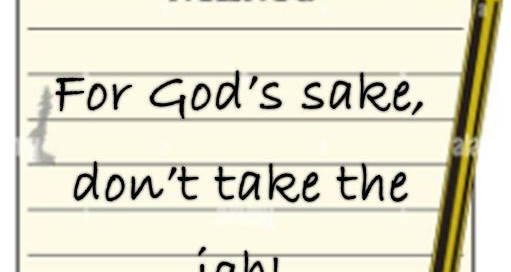 For God's sake,
don't take the
job!